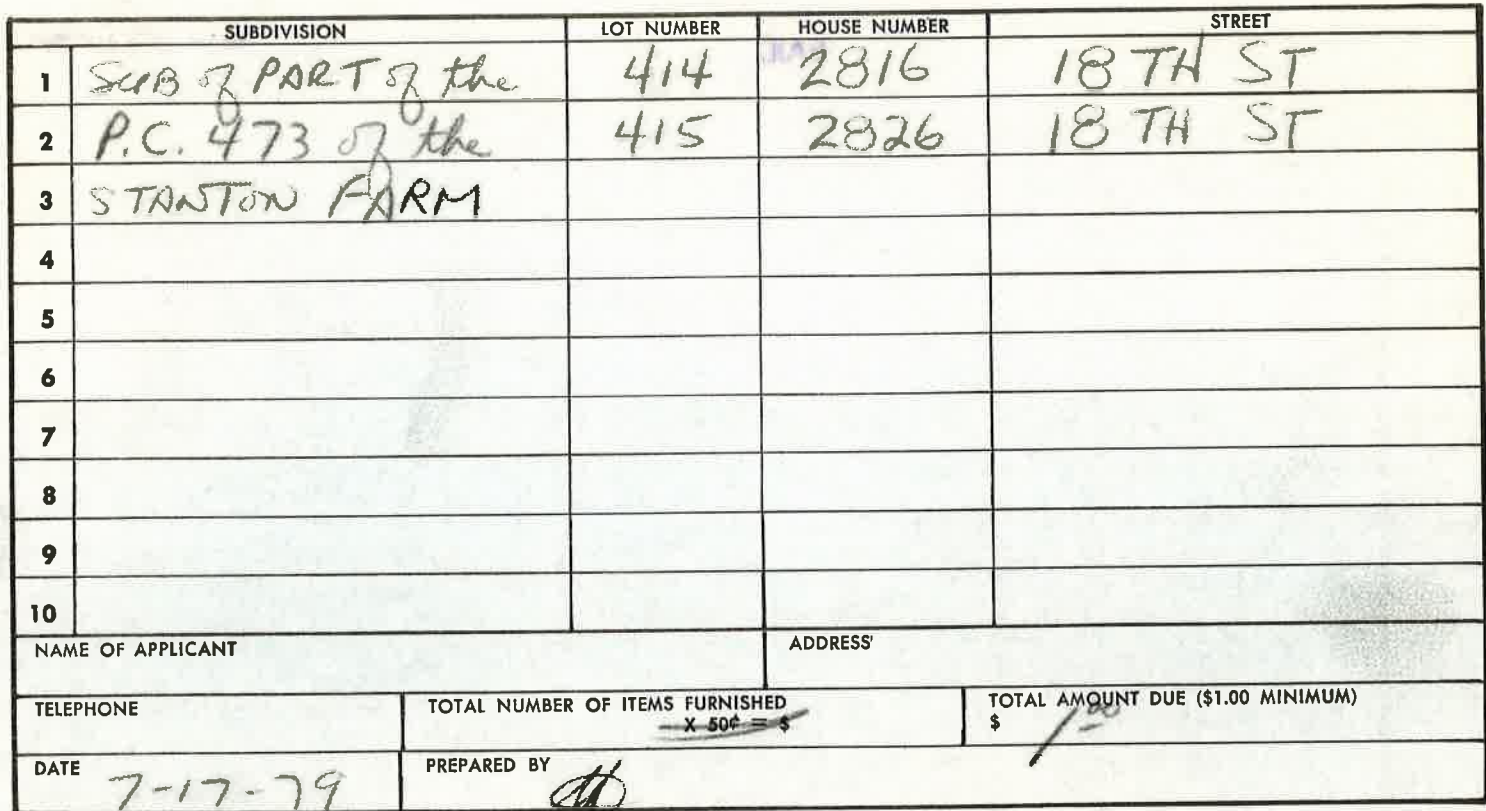 SUBDIVISION LOT NUMBER HOUSE NUMBER STREET
1 SUB of PART of the 414 2816 18 TH ST
2 P.C. 473 of the 415 2826 18 TH ST
3 STANTON FARM
4
5
6
7
8
9
10
NAME OF APPLICANT ADDRESS
TELEPHONE TOTAL NUMBER OF ITEMS FURNISHED TOTAL AMOUNT DUE ($1.00 MINIMUM)
X 50¢ = $ $ 1.00
DATE 7-17-79 PREPARED BY